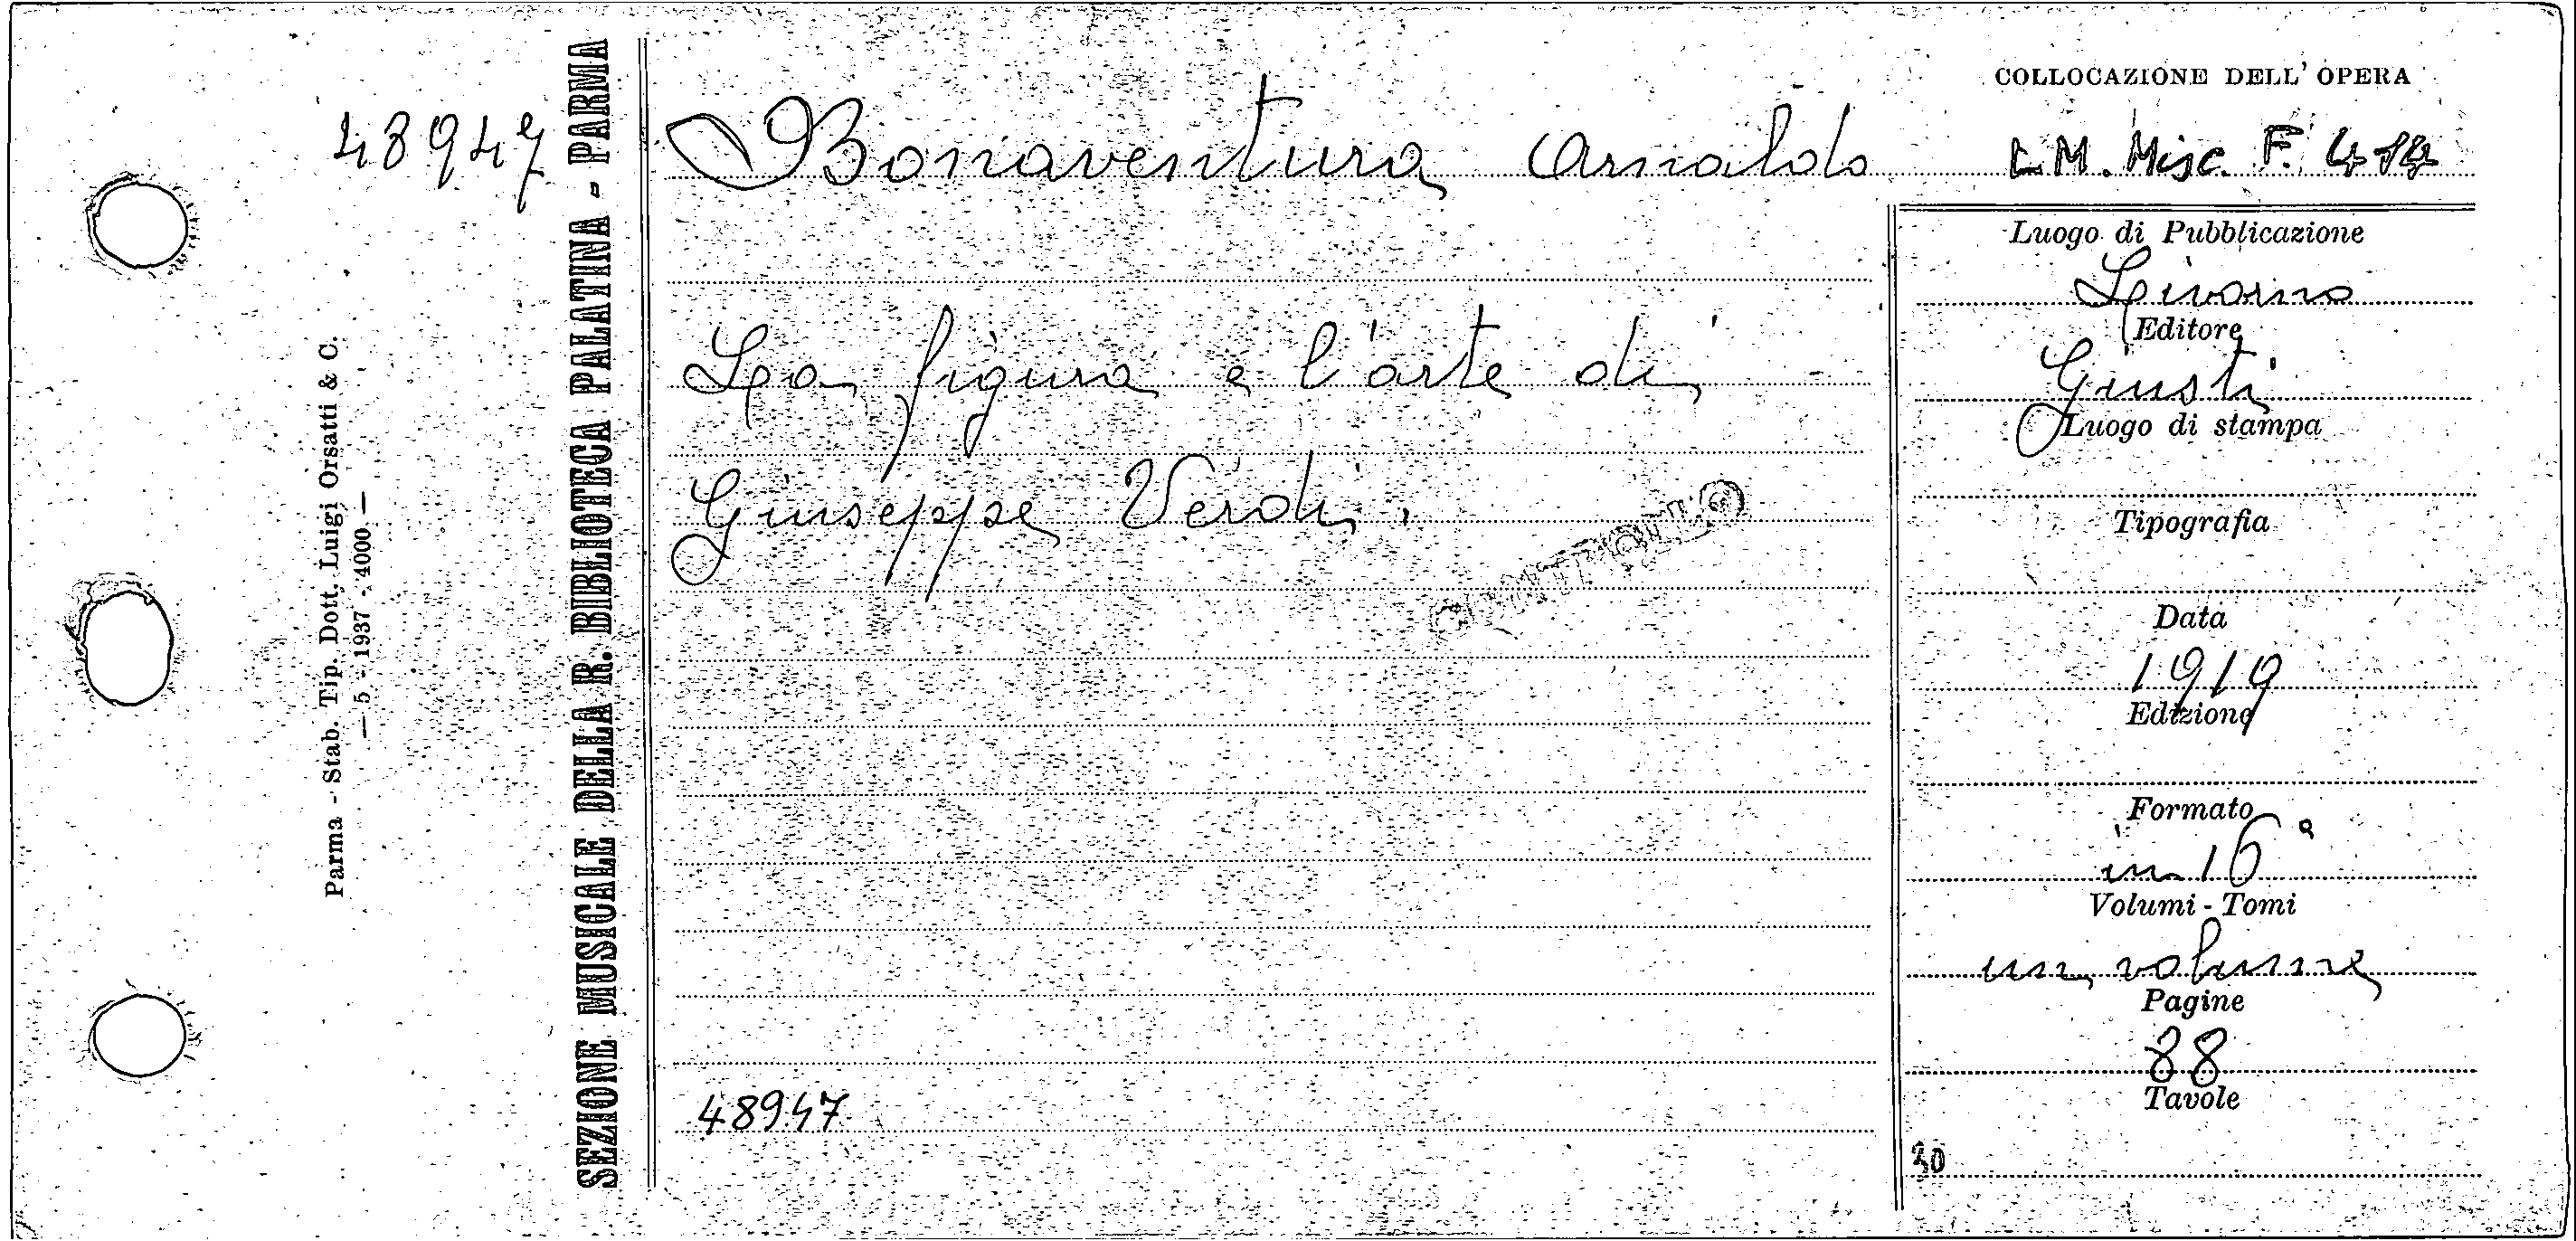 48947
Parma - Stab. Tip. Dott. Luigi Orsatti & C.
— 5 - 1937 - 4000 —
SEZIONE MUSICALE DELLA R. BIBLIOTECA PALATINA - PARMA
Bonaventura Arnaldo
La figura e l'arte di
Giuseppe Verdi.
48947
COLLOCAZIONE DELL'OPERA
L M. Misc. F.
Luogo di Pubblicazione
Livorno
Editore
Giusti
Luogo di stampa
Tipografia
Data
1919
Edizione
Formato
in 16°
Volumi - Tomi
un volume
Pagine
88
Tavole